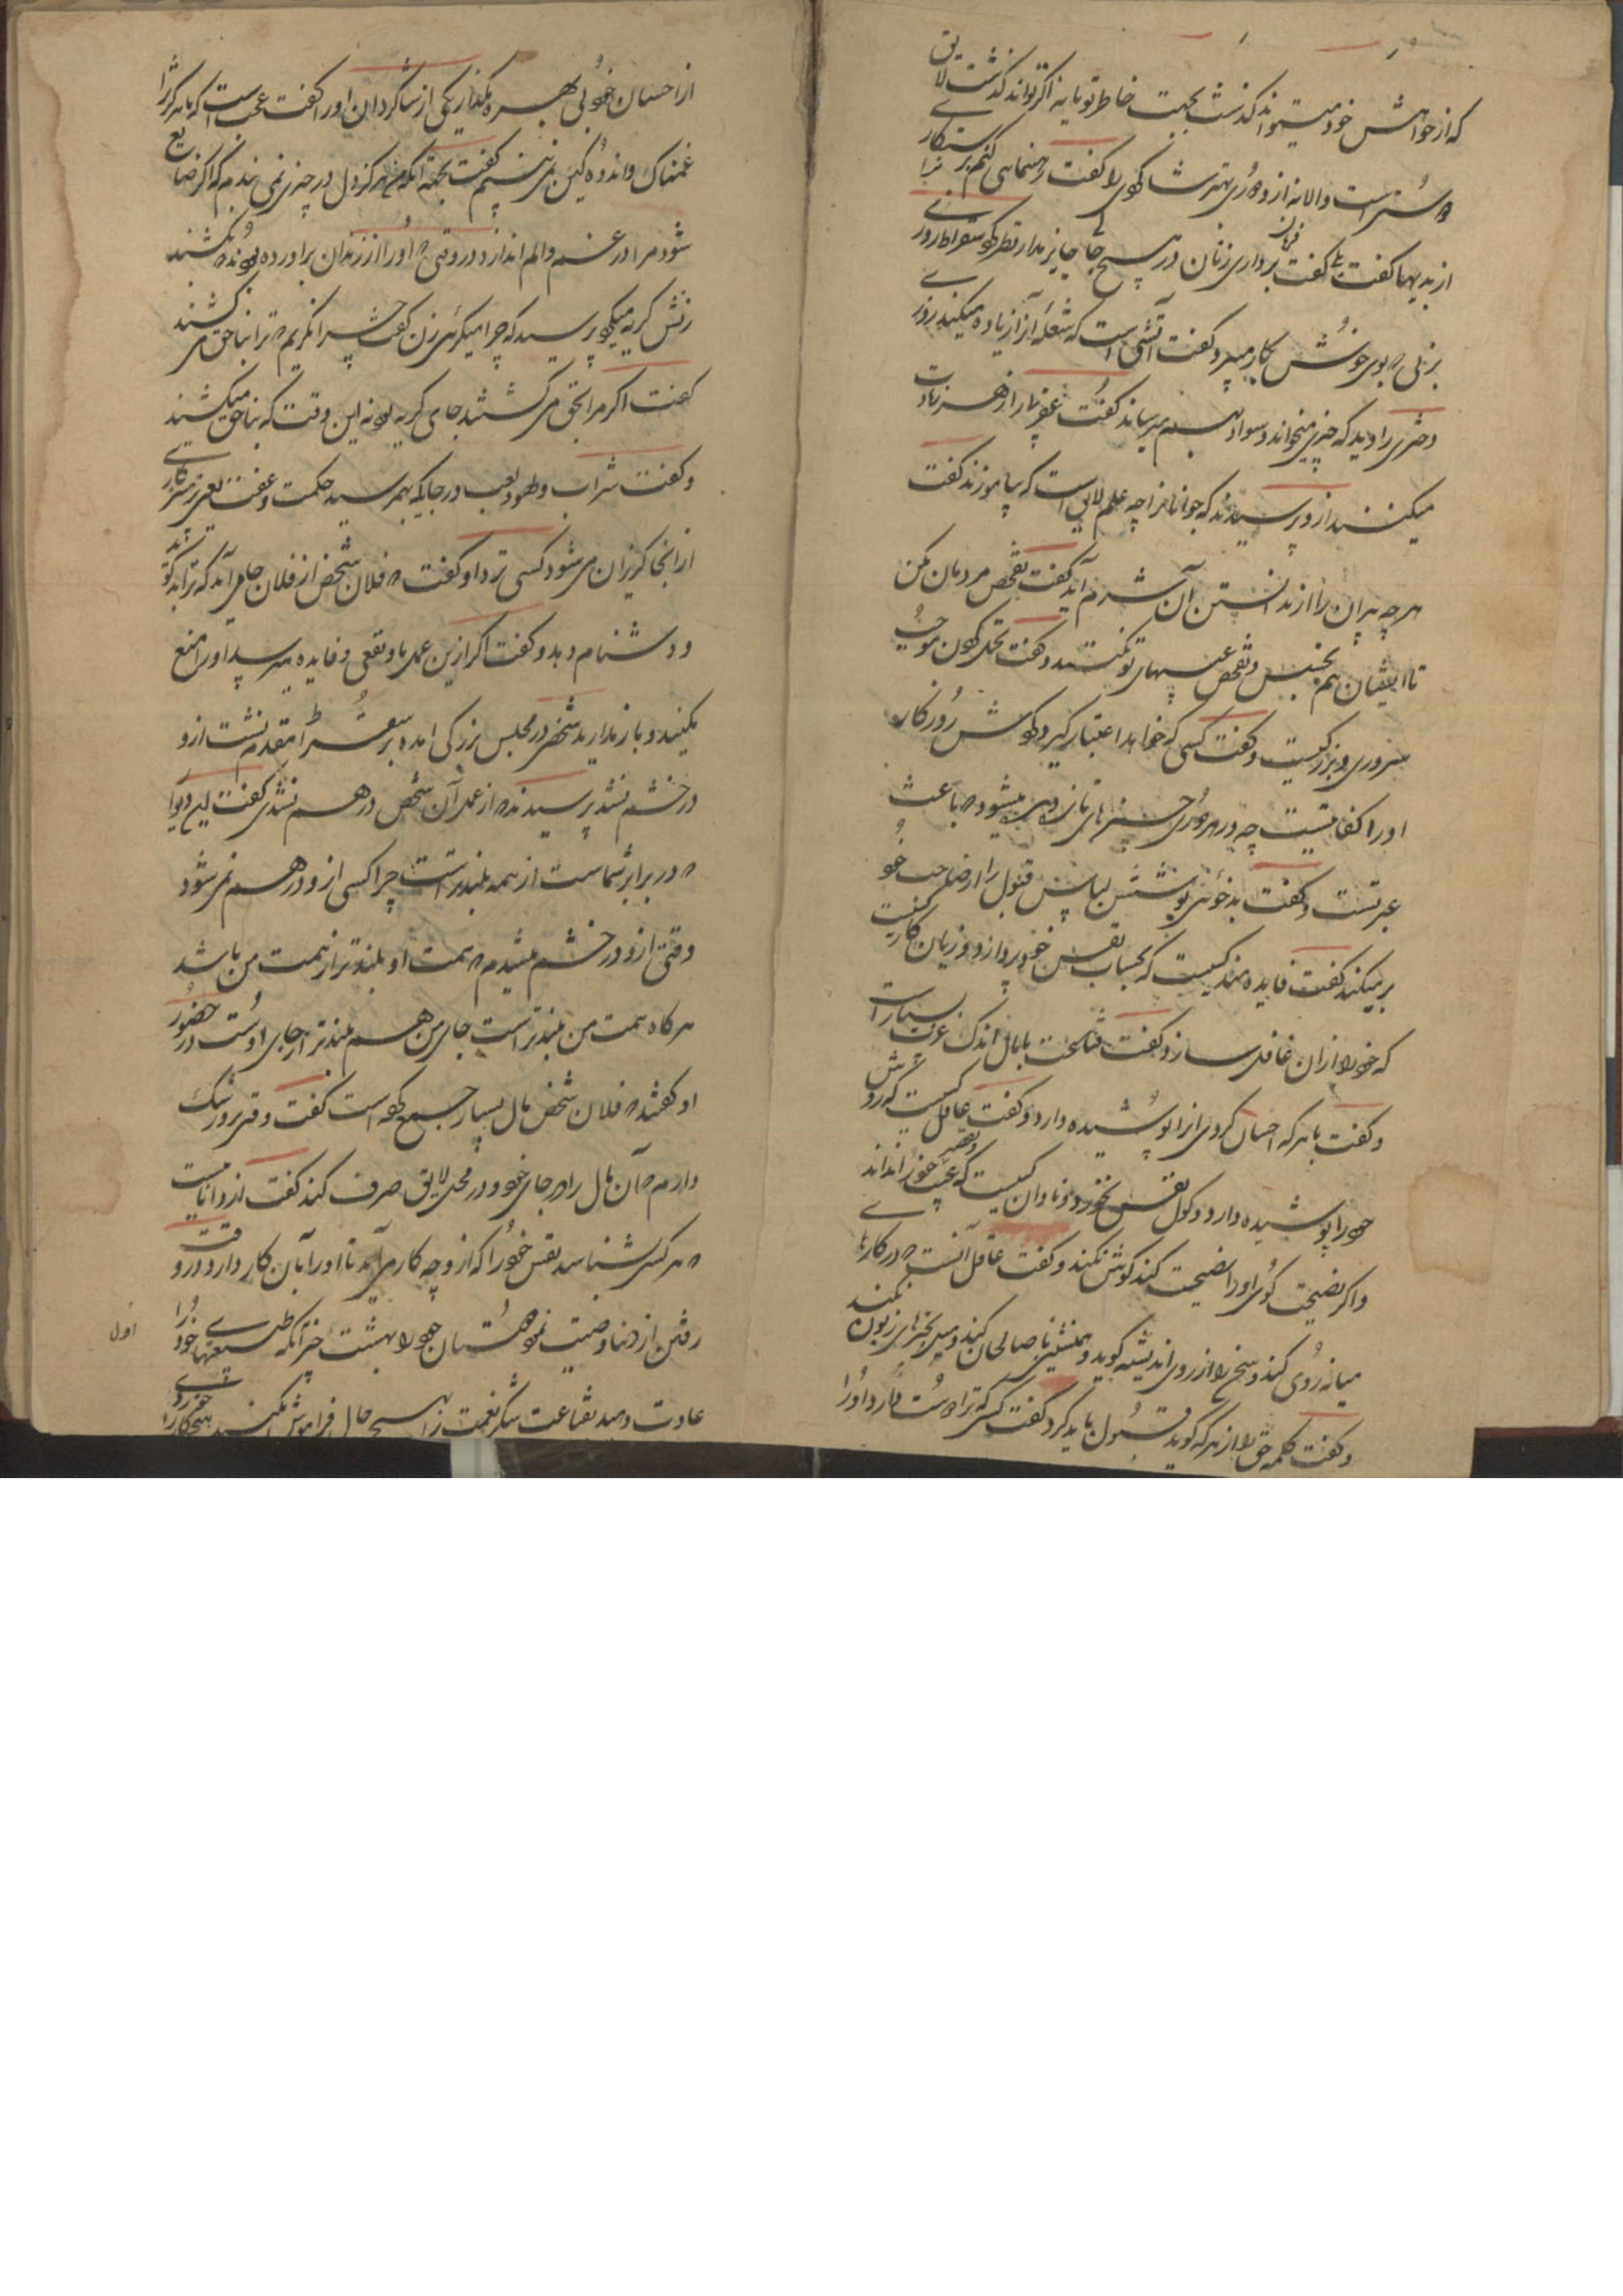 که از خواهش خود میتواند گذشت بجهت خاطر تو یا نه اگر تواند گذشت لایق
دوستیست والا نه از و دوری بهتر شاگردی را گفت رهنمایی کنم برستکاری
از بدیها گفت بلی گفت فرمان برداری زنان در هیچ جا جایز مدار سقراط روزی
بزنی که بوی خوش بکار میبرد گفت آتشی است که شعله آنرا زیاده میکند روزی
دختری را دید که چیزی میخواند و سواد بهم میرساند گفت عقرب را از زهر زیادت
میکنند از و پرسیدند که جوانان را چه علم لایق است که بیاموزند گفت
هر چه پیران را از ندانستن آن شرم آید گفت تفحص مردمان مکن
تا ایشان هم تجسس و تفحص عیبهای تو نکنند و گفت تحمل کردن موجب
سروری و بزرگیست و گفت کسی که خواهد اعتبار گیرد گردش روزگار
او را کفایتست چه در هر روزی چیزهای تازه می‌شود که باعث
عبرتست و گفت بدخوئی پوشش لباس قبول را از صاحب خود
بر میکند گفت فایده مند کسیست که بحساب نفس خود پردازد و زیان کار کسیت
که خود را از ان غافل سازد و گفت قناعت با مال اندک عزت بسیار است
و گفت با هر که احسان کردی انرا پوشیده دار و گفت عاقل کسیست که
خود را پوشیده دارد و گول نفس نخورد و نادان کسیست که عیب خود را نداند
و اگر نصیحت گوی او را نصیحت کند گوش نکند و گفت عاقل آنست که در کارها
میانه روی کند و سخن را از روی اندیشه گوید و همنشینی با صالحان کند و میل بچیزهای زبون نکند
و گفت کلمه حق را از هر که گوید قبول باید کرد گفت کسی که ترا دوست دارد او را
از احسان خود بی بهره مگذار یکی از شاگردان او را گفت عجب است که ما هرگز ترا
غمناک و اندوه گین نمی بینیم گفت بجهة آنکه من هرگز دل در چیزی نمی بندم که اگر ضایع
شود مرا در غم و الم اندازد در وقتی که او را از زندان براورده بودند که بکشند
زنش گریه میکرد پرسید که چرا میگریی زن گفت چرا نگریم که ترا بناحق می کشند
گفت اگر مرا بحق می کشتند جای گریه بود نه این وقت که بناحق میکشند
و گفت شراب و لهو و لعب در جایکه بهم رسید حکمت و عفت یعنی پرهیزکاری
از آنجا گریزان می شود کسی نزد او گفت که فلان شخص از فلان جا می آید که ترا بد گوید
و دشنام دهد و گفت اگر ازین عمل باو نفعی و فایده میرسد او را منع
مکنید و باز مدارید شخصی در مجلس بزرگی امده بر سقراط مقدم نشست از و
در خشم نشد پرسیدند که از عمل آن شخص درهم نشدی گفت این دیوار
که در برابر شماست از همه بلندتر است چرا کسی از و درهم نمی شود
وقتی از و در خشم میشدم که همت او بلندتر از همت من باشد
هر گاه همت من بلندتر است جای من هم بلندتر از جای اوست در حضور
او گفتند که فلان شخص مال بسیار جمع کرده است گفت وقتی برو رشک
دارم که آن مال را در جای خود و در محل لایق صرف کند گفت از دانائیست
که هر کس شناسد نفس خود را که از و چه کار می آید تا او را بآن کار دارد وقت
رفتن از دنیا وصیت نمود دوستان خود را بهشت چیز آنکه طبیعتها خود را
عادت دهید بقناعت شکر نعمت را هیچ حال فراموش مکنید
اول